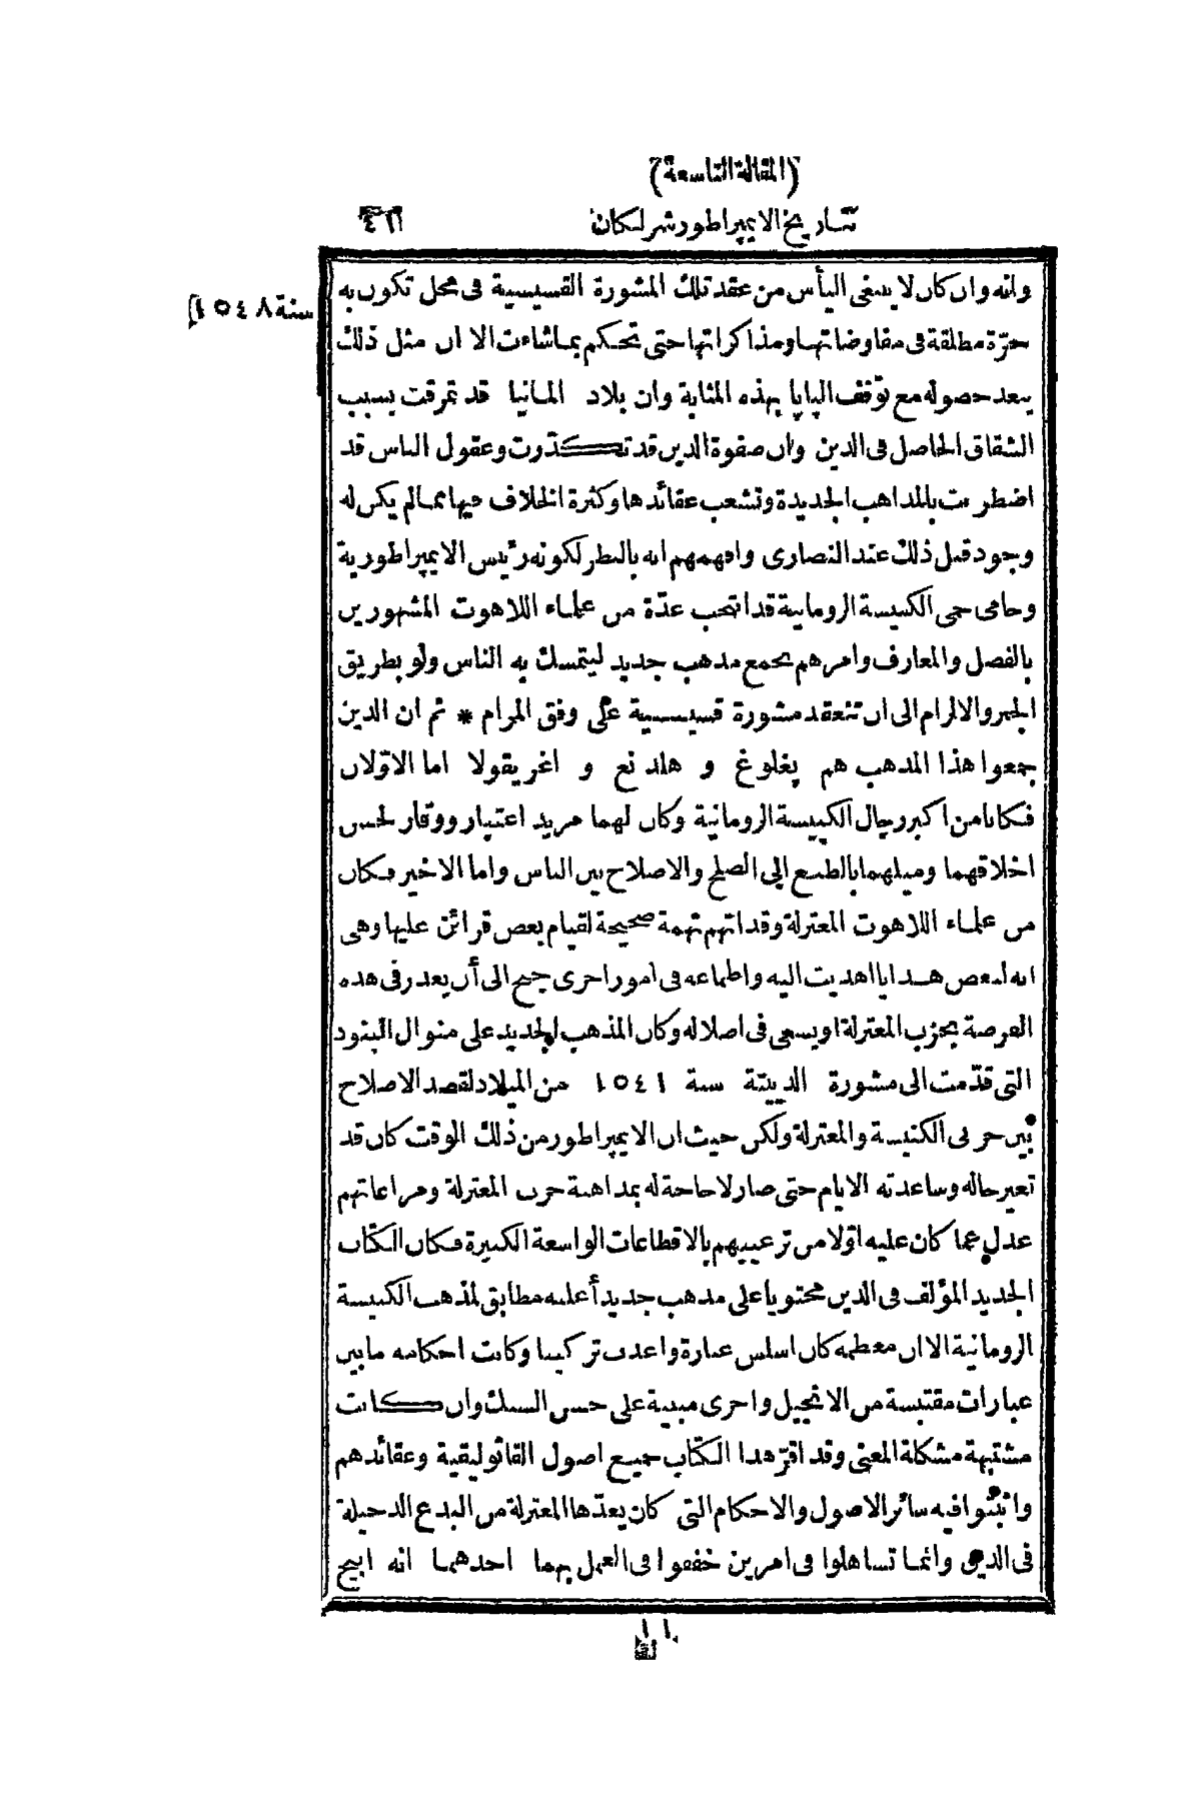 (المقالة التاسعة)
تاريخ الايمپراطور شرلكان
سنة ١٥٤٨
وانه وان كان لا ينبغى اليأس من عقد تلك المشورة القسيسية فى محل تكون به
حرّة مطلقة فى مفاوضاتها ومذاكراتها حتى تحكم بما شاءت الا ان مثل ذلك
يبعد حصوله مع توّقف البابا بهذه المثابة وان بلاد المانيا قد تمزقت بسبب
الشقاق الحاصل فى الدين وان صفوة الدين قد تكدّرت وعقول الناس قد
اضطربت بالمذاهب الجديدة وتشعب عقائدها وكثرة الخلاف فيها مما لم يكن له
وجود قبل ذلك عند النصارى وافهمهم انه بالنظر لكونه رئيس الايمپراطورية
وحامى حمى الكنيسة الرومانية قد انتخب عدّة من علماء اللاهوت المشهورين
بالفضل والمعارف وامرهم بجمع مذهب جديد ليتمسك به الناس ولو بطريق
الجبر والالزام الى ان تنعقد مشورة قسيسية على وفق المرام * ثم ان الذين
جمعوا هذا المذهب هم پغلوغ و هلدنغ و اغريقولا اما الاوّلان
فكانا من اكبر رجال الكنيسة الرومانية وكان لهما مزيد اعتبار ووقار لحسن
اخلاقهما وميلهما بالطبع الى الصلح والاصلاح بين الناس واما الاخير فكان
من علماء اللاهوت المعتزلة وقد اتهم تهمة صحيحة لقيام بعض قرائن عليها وهى
انه لبعض هدايا اهديت اليه واطماعه فى امور اخرى جنح الى أن يغدر فى هذه
الفرصة بحزب المعتزلة او يسعى فى اضلاله وكان المذهب الجديد على منوال البنود
التى قدّمت الى مشورة الدييتة سنة ١٥٤١ من الميلاد لقصد الاصلاح
بين حزبى الكنيسة والمعتزلة ولكن حيث ان الايمپراطور من ذلك الوقت كان قد
تغير حاله وساعدته الايام حتى صار لا حاجة له بمداهنة حزب المعتزلة ومراعاتهم
عدل عما كان عليه اوّلا من ترغيبهم بالاقطاعات الواسعة الكبيرة فكان الكتاب
الجديد المؤلف فى الدين محتويا على مذهب جديد أغلبه مطابق لمذهب الكنيسة
الرومانية الا ان معظمه كان اسلس عبارة واعذب تركيبا وكانت احكامه ما بين
عبارات مقتبسة من الانجيل واخرى مبنية على حسن السبك وان كانت
مشتبهة مشكلة المعنى وقد اقرّ هذا الكتاب جميع اصول القاثوليقية وعقائدهم
واثبتوا فيه سائر الاصول والاحكام التى كان يعدّها المعتزلة من البدع الدخيلة
فى الدين وانما تساهلوا فى امرين خففوا فى العمل بهما احدهما انه ابيح